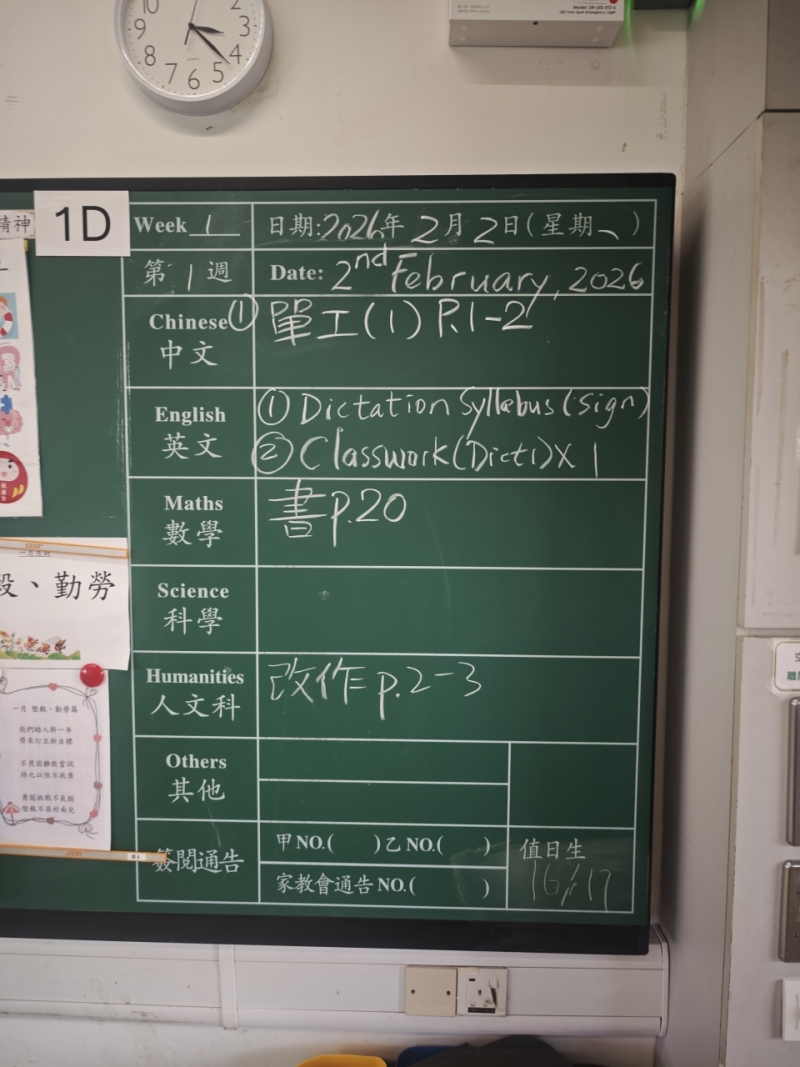 10 2
9 3
8 4
7 6 5
精神
1D
Week 1 日期:2026年 2月 2日(星期一)
第 1 週 Date: 2nd February, 2026
Chinese ① 單工(1) P.1-2
中文
English ① Dictation Syllabus(sign)
英文 ② Classwork(Dicti)X 1
Maths 書p.20
數學
Science
科學
Humanities 改作 p.2-3
人文科
Others
其他
甲NO.( )乙NO.( ) 值日生
簽閱通告
家教會通告NO.( ) 16/17
、勤勞
一月 堅毅、勤勞篇
我們踏入新一年
要來訂立新目標
不畏困難敢嘗試
持之以恆不放棄
勇闖挑戰不氣餒
1D